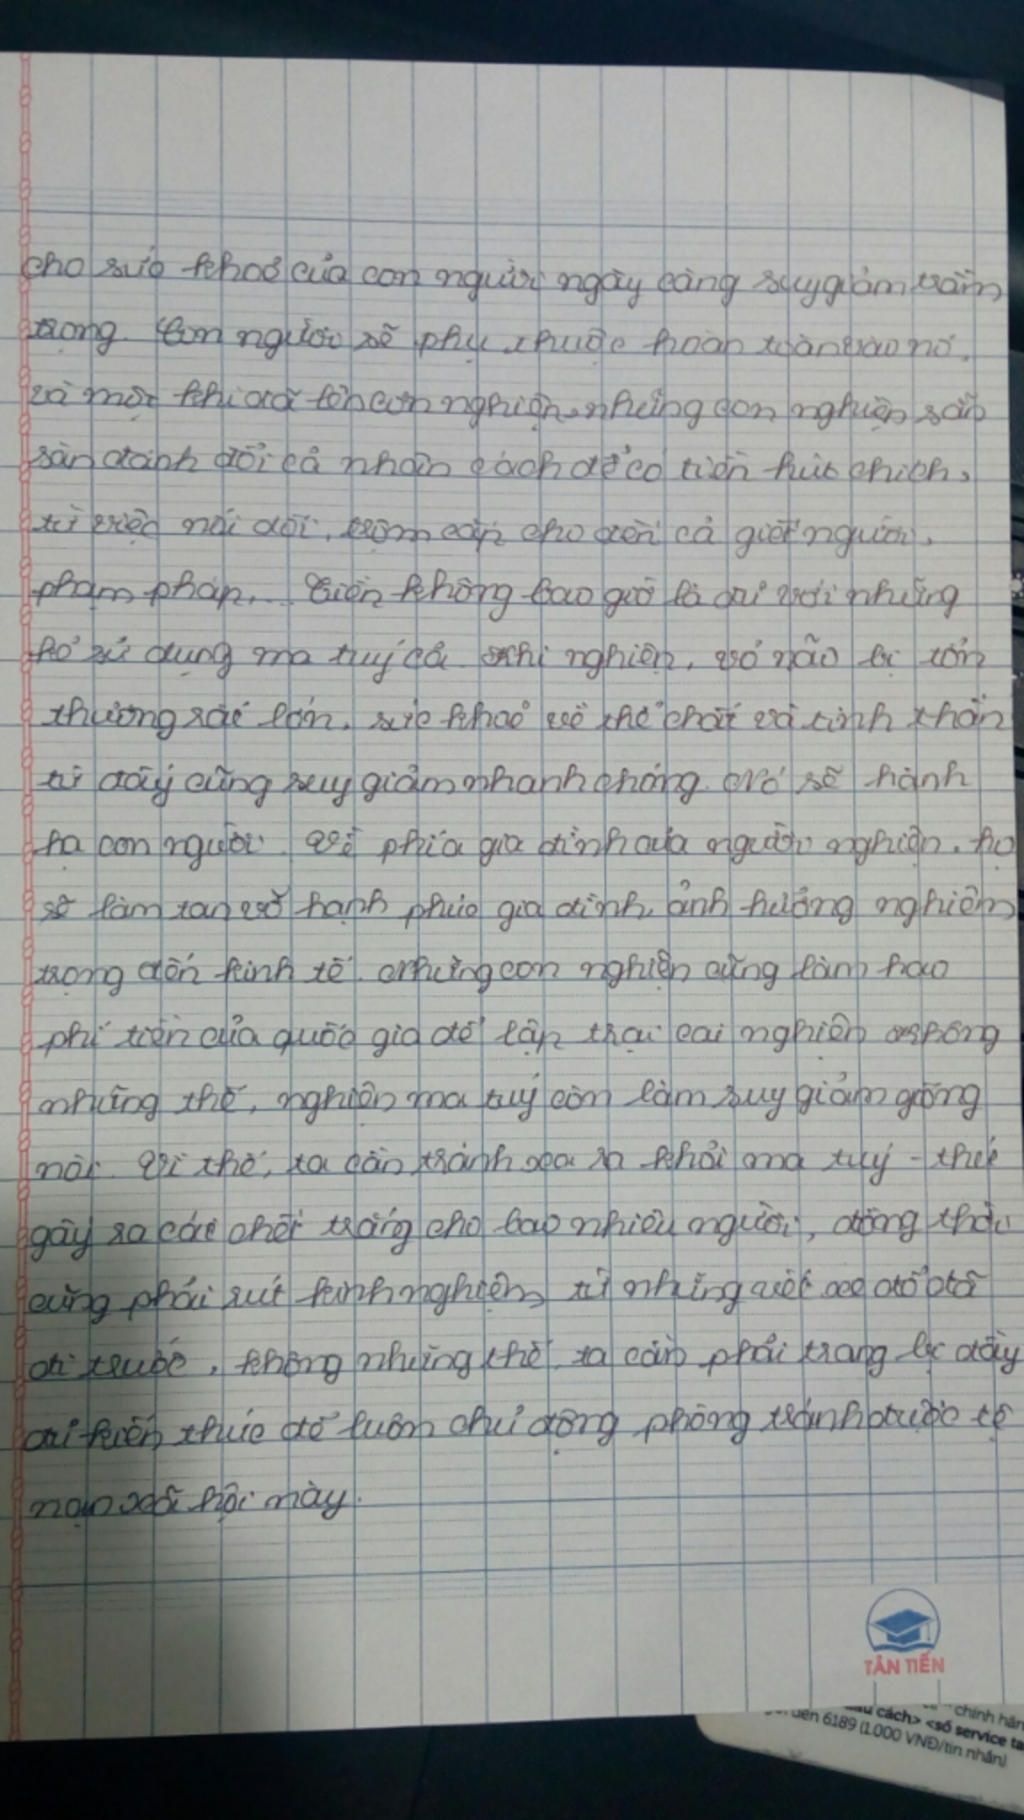 cho sức khoẻ của con người ngày càng suy giảm trầm
trọng. Con người sẽ phụ thuộc hoàn toàn vào nó.
và một khi đã lên cơn nghiện, những con nghiện sẵn
sàn đánh đổi cả nhân cách để có tiền hút chích,
từ việc nói dối, trộm cắp cho đến cả giết người,
phạm pháp,... Tiền không bao giờ là đủ với những
kẻ sử dụng ma tuý cả. Khi nghiện, vỏ não bị tổn
thương rất lớn, sức khoẻ về thể chất và tinh thần
từ đấy cũng suy giảm nhanh chóng. Nó sẽ hành
hạ con người. Về phía gia đình của người nghiện, họ
sẽ làm tan vỡ hạnh phúc gia đình, ảnh hưởng nghiêm
trọng đến kinh tế. Những con nghiện cũng làm hao
phí tiền của quốc gia để lập trại cai nghiện. Không
những thế, nghiện ma tuý còn làm suy giảm giống
nòi. Vì thế, ta cần tránh xa ra khỏi ma tuý - thứ
gây ra cái chết trắng cho bao nhiêu người, đồng thời
cũng phải rút kinh nghiệm từ những vết xe đổ đã
đi trước, không những thế, ta cần phải trang bị đầy
đủ kiến thức để luôn chủ động phòng tránh được tệ
nạn xã hội này.
TÂN TIẾN
chính hãn
cách> <số service ta
đến 6189 (1.000 VNĐ/tin nhắn)